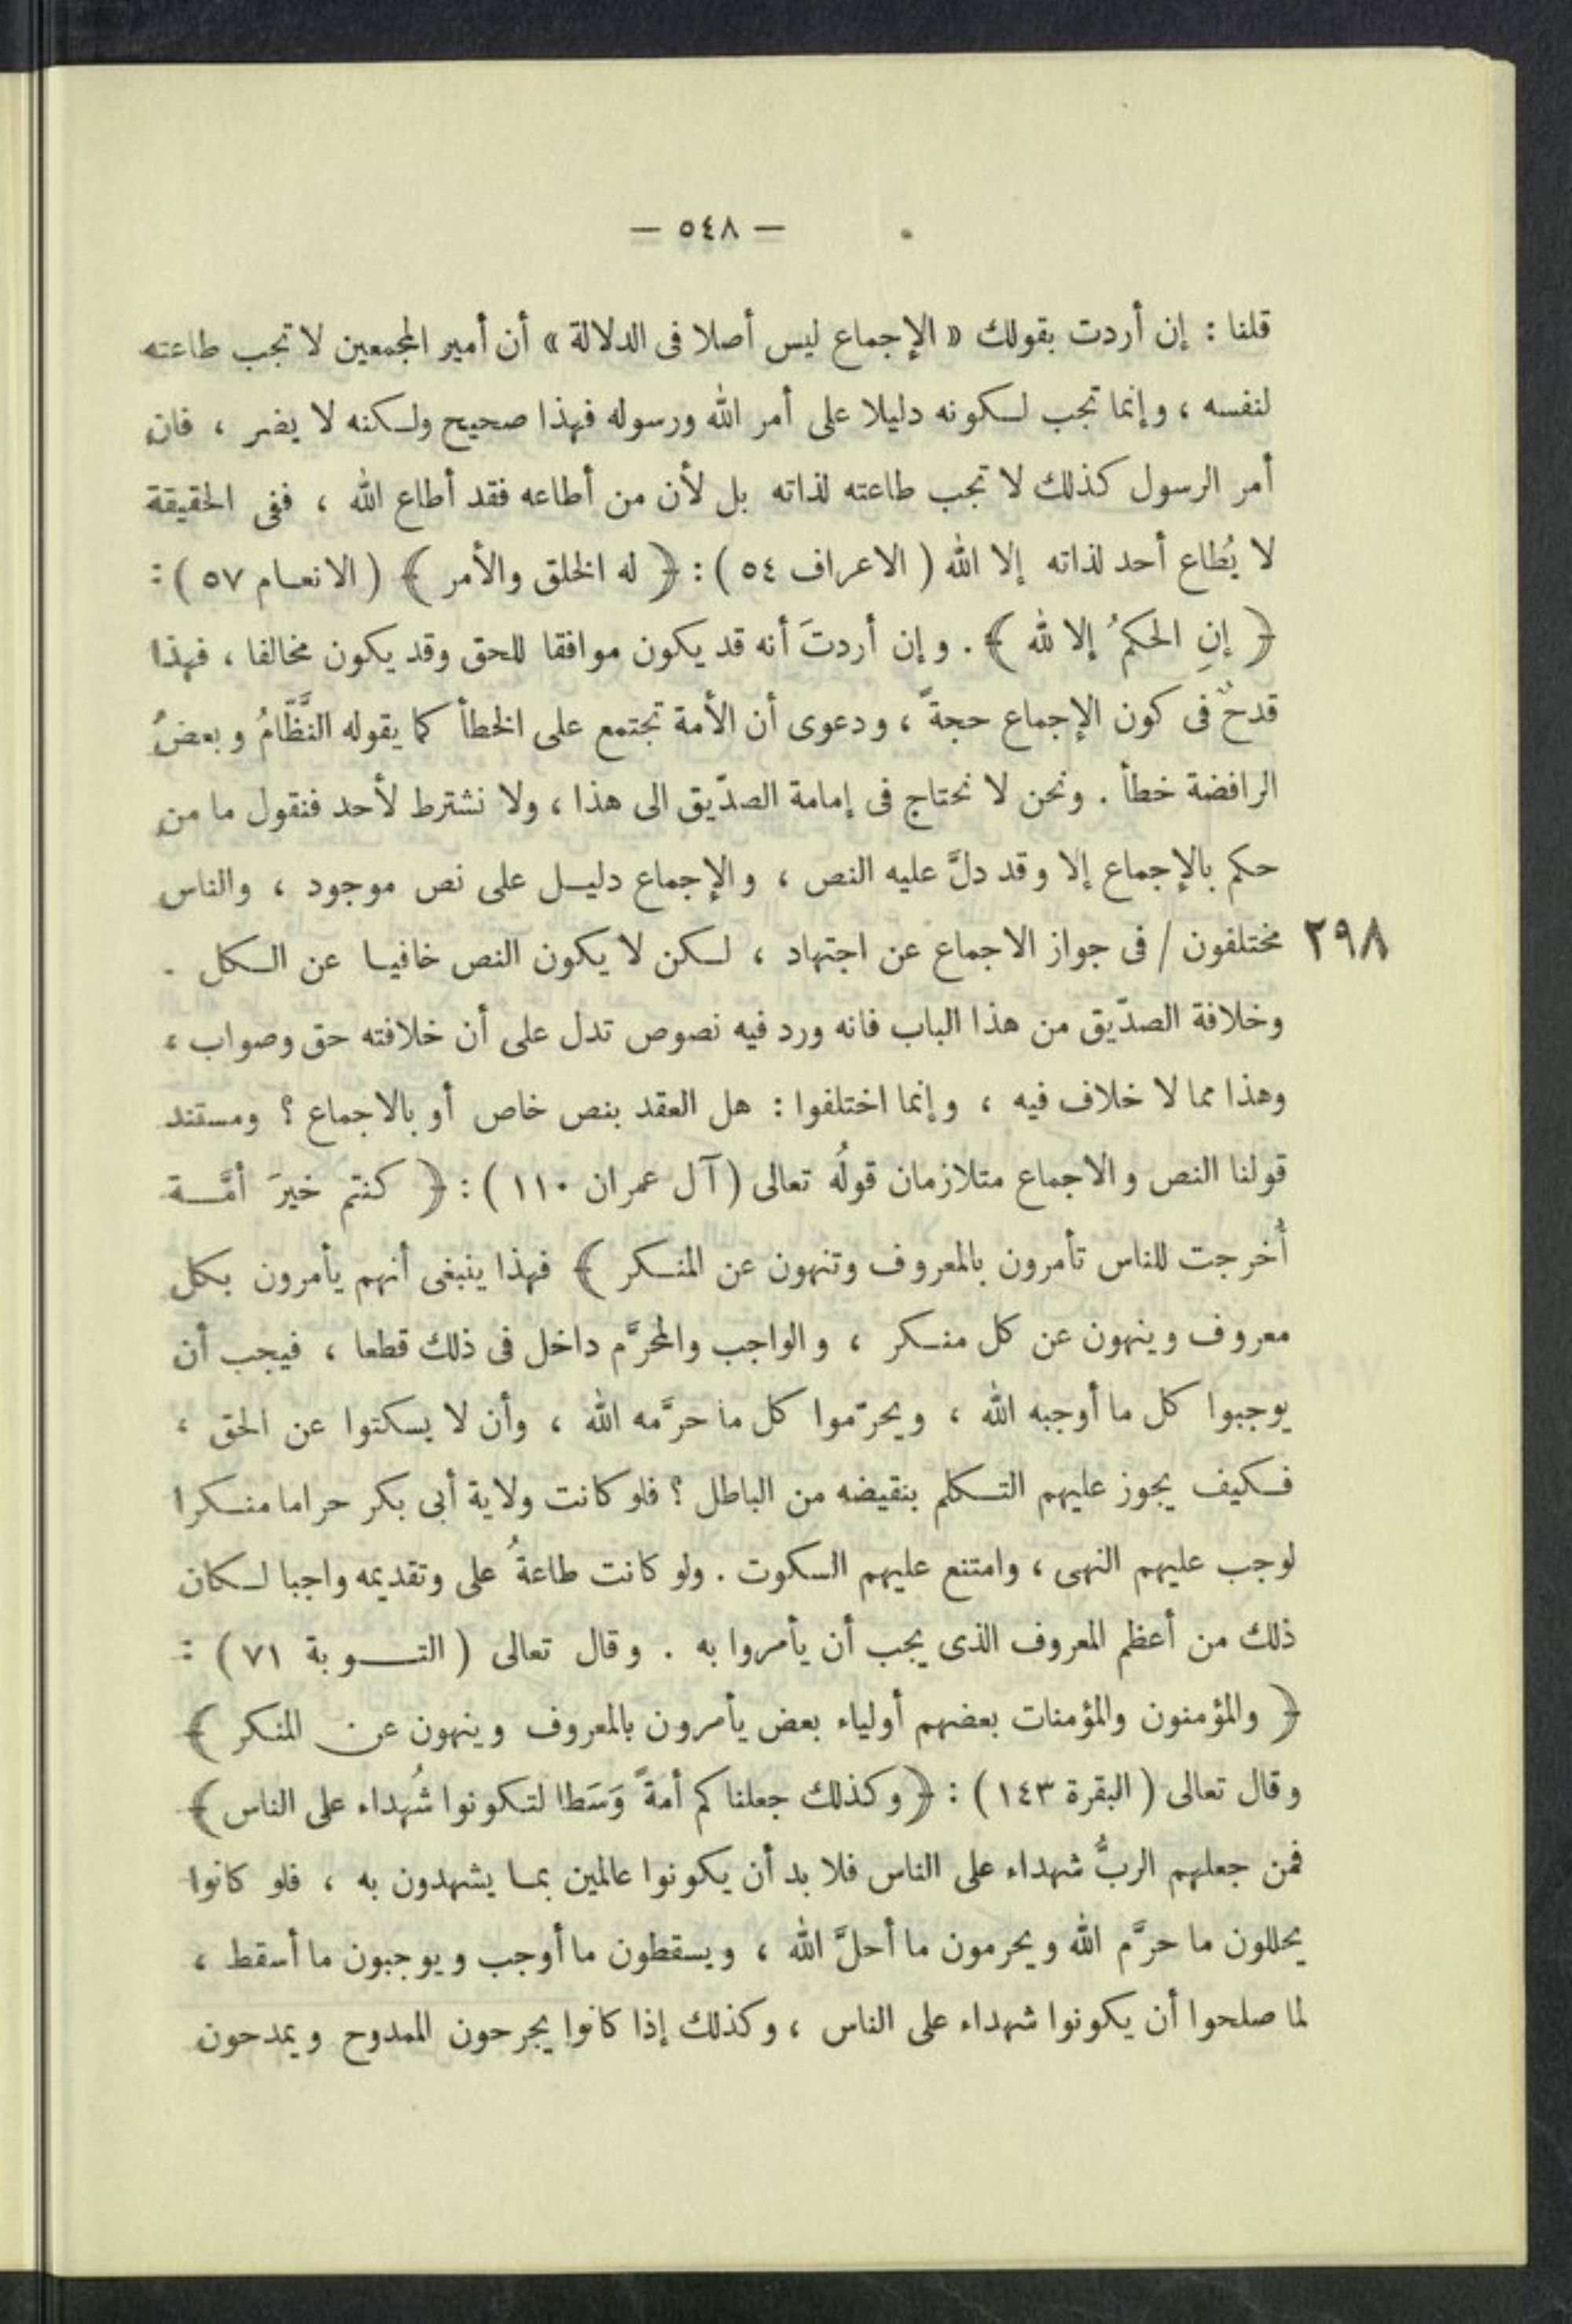 — ٥٤٨ —
قلنا : إن أردت بقولك « الإجماع ليس أصلا فى الدلالة » أن أمير المجمعين لا تجب طاعته
لنفسه ، وإنما تجب لكونه دليلا على أمر الله ورسوله فهذا صحيح ولكنه لا يضر ، فان
أمر الرسول كذلك لا تجب طاعته لذاته بل لأن من أطاعه فقد أطاع الله ، ففى الحقيقة
لا يُطاع أحد لذاته إلا الله ( الاعراف ٥٤ ) : ﴿ له الخلق والأمر ﴾ ( الانعام ٥٧ ) :
﴿ إنِ الحكمُ إلا لله ﴾ . وإن أردتَ أنه قد يكون موافقا للحق وقد يكون مخالفا ، فهذا
قدحٌ فى كون الإجماع حجةً ، ودعوى أن الأمة تجتمع على الخطأ كما يقوله النَّظَّامُ وبعضُ
الرافضة خطأ . ونحن لا نحتاج فى إمامة الصدّيق الى هذا ، ولا نشترط لأحد فنقول ما من
حكم بالإجماع إلا وقد دلَّ عليه النص ، والإجماع دليل على نص موجود ، والناس
٢٩٨ مختلفون / فى جواز الاجماع عن اجتهاد ، لكن لا يكون النص خافيا عن الكل .
وخلافة الصدّيق من هذا الباب فانه ورد فيه نصوص تدل على أن خلافته حق وصواب ،
وهذا مما لا خلاف فيه ، وإنما اختلفوا : هل العقد بنص خاص أو بالاجماع ؟ ومستند
قولنا النص والاجماع متلازمان قولُه تعالى ( آل عمران ١١٠ ) : ﴿ كنتم خيرَ أمَّة
أُخرجت للناس تأمرون بالمعروف وتنهون عن المنكر ﴾ فهذا ينبغى أنهم يأمرون بكل
معروف وينهون عن كل منكر ، والواجب والمحرَّم داخل فى ذلك قطعا ، فيجب أن
يوجبوا كل ما أوجبه الله ، ويحرّموا كل ما حرَّمه الله ، وأن لا يسكتوا عن الحق ،
فكيف يجوز عليهم التكلم بنقيضه من الباطل ؟ فلو كانت ولاية أبى بكر حراما منكرا
لوجب عليهم النهى ، وامتنع عليهم السكوت . ولو كانت طاعةُ على وتقديمه واجبا لكان
ذلك من أعظم المعروف الذى يجب أن يأمروا به . وقال تعالى ( التوبة ٧١ ) :
﴿ والمؤمنون والمؤمنات بعضهم أولياء بعض يأمرون بالمعروف وينهون عن المنكر ﴾
وقال تعالى ( البقرة ١٤٣ ) : ﴿ وكذلك جعلناكم أمةً وَسَطا لتكونوا شُهداء على الناس ﴾
فمن جعلهم الربُّ شهداء على الناس فلا بد أن يكونوا عالمين بما يشهدون به ، فلو كانوا
يحللون ما حرَّم الله ويحرمون ما أحلَّ الله ، ويسقطون ما أوجب ويوجبون ما أسقط ،
لما صلحوا أن يكونوا شهداء على الناس ، وكذلك إذا كانوا يجرحون الممدوح ويمدحون